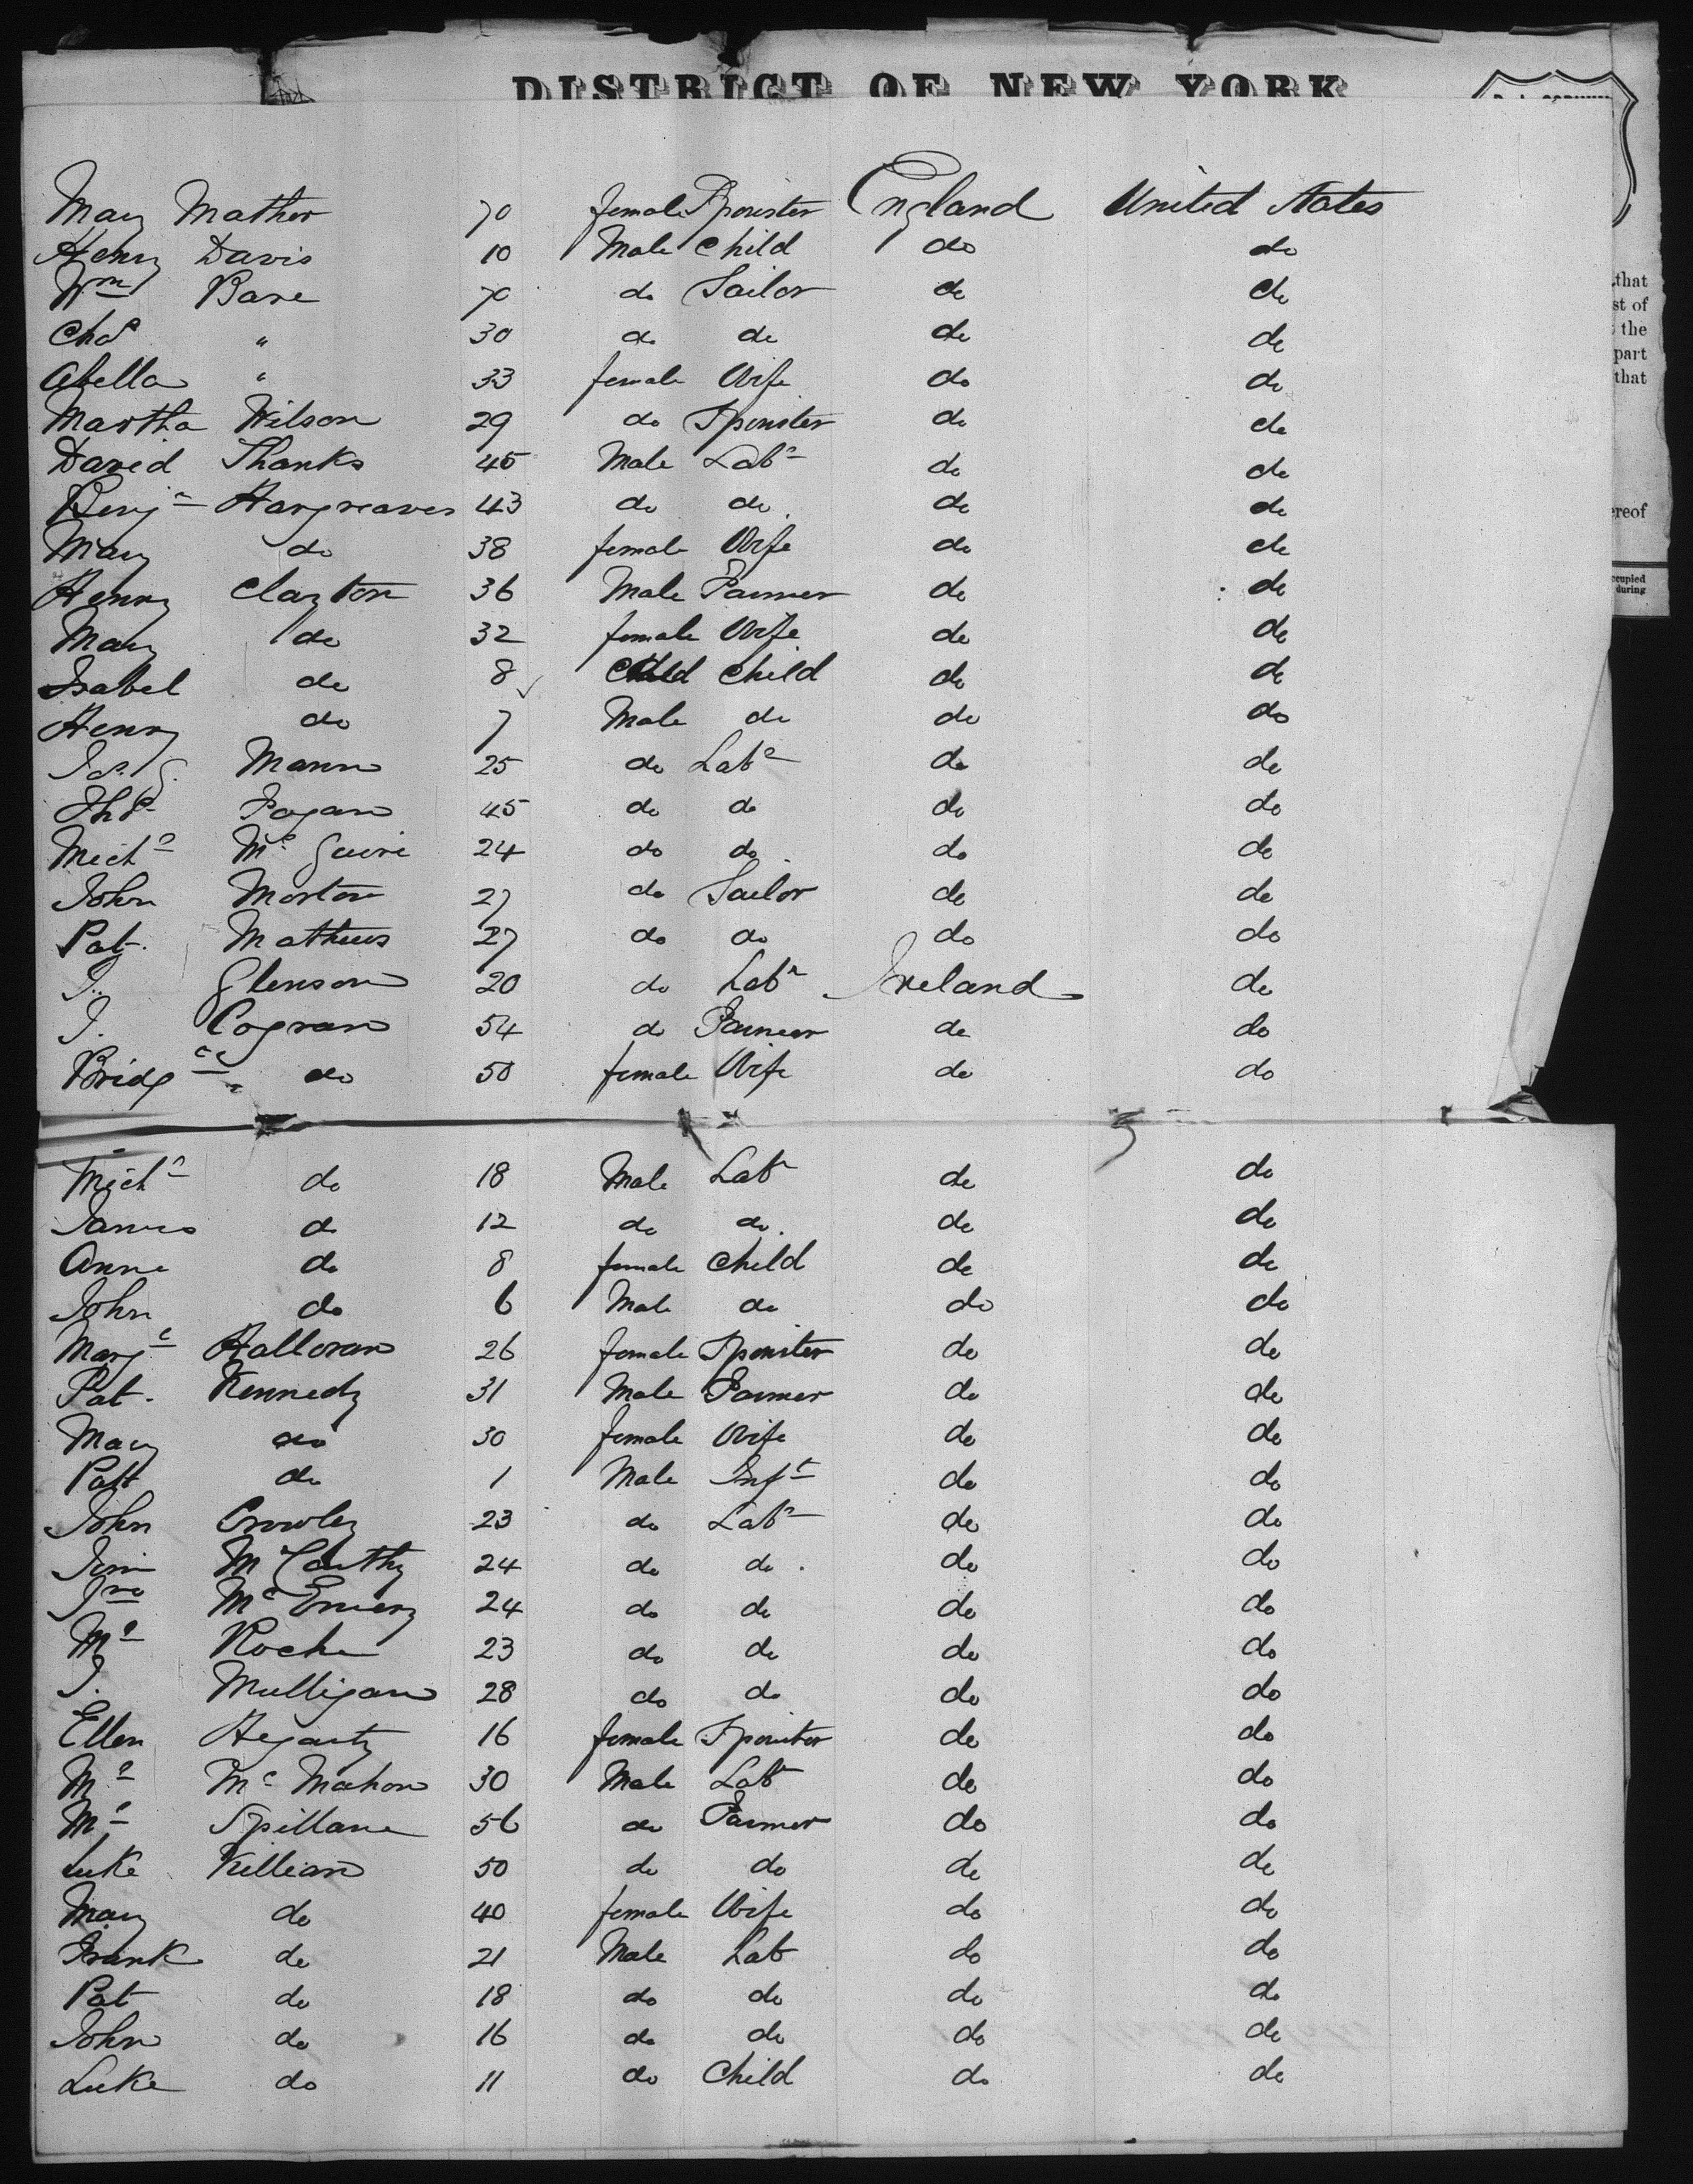 DISTRICT OF NEW YORK
that
st of
the
part
that
ereof
ccupied
during
Mary Mather 70 female Spinster England United States
Henry Davis 10 Male Child do do
Wm Bare 70 do Sailor do do
Chas " 30 do do do do
Abella " 33 female Wife do do
Martha Wilson 29 do Spinster do do
David Shanks 45 Male Labr do do
Benjn Hargreaves 43 do do do do
Mary do 38 female Wife do do
Henry Clayton 36 Male Farmer do do
Mary do 32 female Wife do do
Isabel do 8 Child do do
Henry do 7 Male do do do
Mann 25 do Labr do do
Thos Fogan 45 do do do do
Michl Mc Guire 24 do do do do
John Morton 27 do Sailor do do
Pat. Mathews 27 do do do do
J. Glenson 20 do Labr Ireland do
J. Cogran 54 do Farmer do do
Bridgt do 50 female Wife do do
Michl do 18 Male Labr do do
James do 12 do do do do
Anne do 8 female Child do do
John do 6 Male do do do
Margt Halloran 26 female Spinster do do
Pat. Kennedy 31 Male Farmer do do
Mary do 30 female Wife do do
Patt do 1 Male Inft do do
John Crowley 23 do Labr do do
Jim McCarthy 24 do do do do
Jno Mc Enery 24 do do do do
Ml Roche 23 do do do do
J. Mulligan 28 do do do do
Ellen Hegarty 16 female Spinster do do
Ml Mc Mahon 30 Male Labr do do
Ml Spillane 56 do Farmer do do
Luke Killian 50 do do do do
Mary do 40 female Wife do do
Frank do 21 Male Lab do do
Pat do 18 do do do do
John do 16 do do do do
Luke do 11 do Child do do